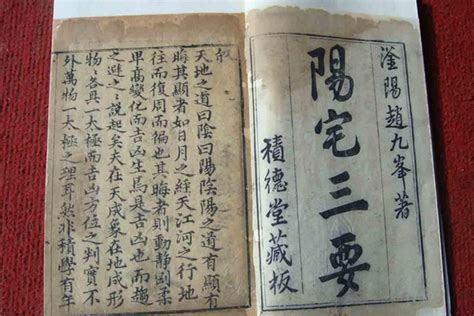 滏陽趙九峯著
陽宅三要
積德堂藏板
天地之道曰陰曰陽陰陽之道有顯有
晦其顯者如日月之經天江河之行地
往而復周而徧也其晦者則動靜剛柔
變化而吉凶生焉吉凶也而趨
之避之說起矣夫在天成象在地成形
物物各具一太極而吉凶方位之判實不
外萬物一太極之理耳然非積學有年